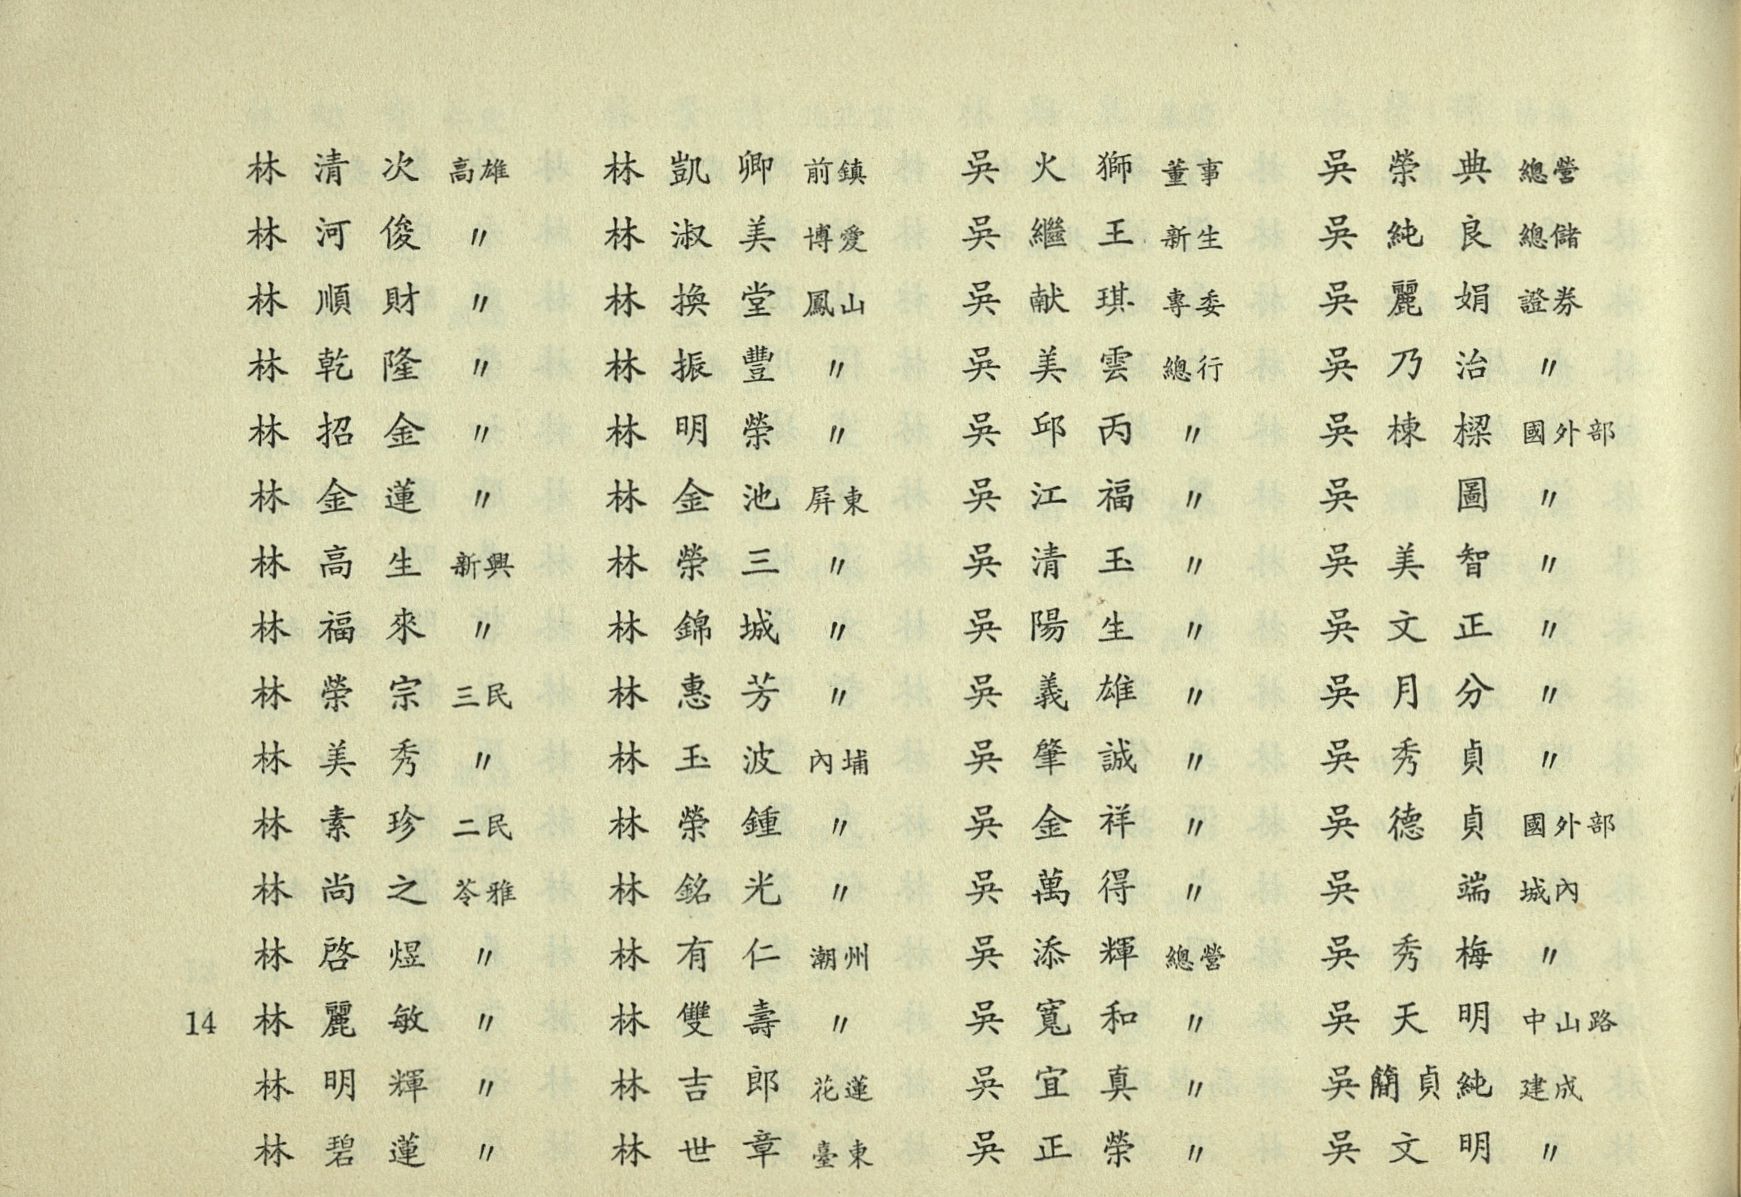 林清次 高雄 林凱卿 前鎮 吳火獅 董事 吳榮典 總營
林河俊 〃 林淑美 博愛 吳繼王 新生 吳純良 總儲
林順財 〃 林換堂 鳳山 吳献琪 專委 吳麗娟 證券
林乾隆 〃 林振豐 〃 吳美雲 總行 吳乃治 〃
林招金 〃 林明榮 〃 吳邱丙 〃 吳棟樑 國外部
林金蓮 〃 林金池 屏東 吳江福 〃 吳圖 〃
林高生 新興 林榮三 〃 吳清玉 〃 吳美智 〃
林福來 〃 林錦城 〃 吳陽生 〃 吳文正 〃
林榮宗 三民 林惠芳 〃 吳義雄 〃 吳月分 〃
林美秀 〃 林玉波 內埔 吳肇誠 〃 吳秀貞 〃
林素珍 二民 林榮鍾 〃 吳金祥 〃 吳德貞 國外部
林尚之 苓雅 林銘光 〃 吳萬得 〃 吳端 城內
林啓煜 〃 林有仁 潮州 吳添輝 總營 吳秀梅 〃
14 林麗敏 〃 林雙壽 〃 吳寬和 〃 吳天明 中山路
林明輝 〃 林吉郎 花蓮 吳宜真 〃 吳簡貞純 建成
林碧蓮 〃 林世章 臺東 吳正榮 〃 吳文明 〃